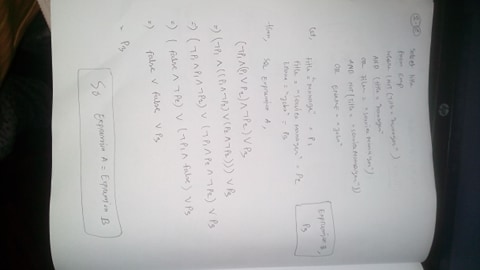 Select Nm
from Emp
where (not (title = "manager")
AND (title = "manager"
OR title = "Senior manager")
AND not (title = "Senior manager"))
OR Ename = "John"
Expression B,
P3
Let,
title = "manager" = P1
title = "Senior manager" = P2
Ename = "John" = P3
then, SQL Expression A,
(¬P1∧(P1∨P2)∧¬P2)∨P3
=) (¬P1∧((P1∧¬P2)∨(P2∧¬P2)))∨P3
=) (¬P1∧P1∧¬P2)∨(¬P1∧P2∧¬P2)∨P3
=) (false∧¬P2)∨(¬P1∧false)∨P3
=) false∨false∨P3
= P3
So Expression A = Expression B